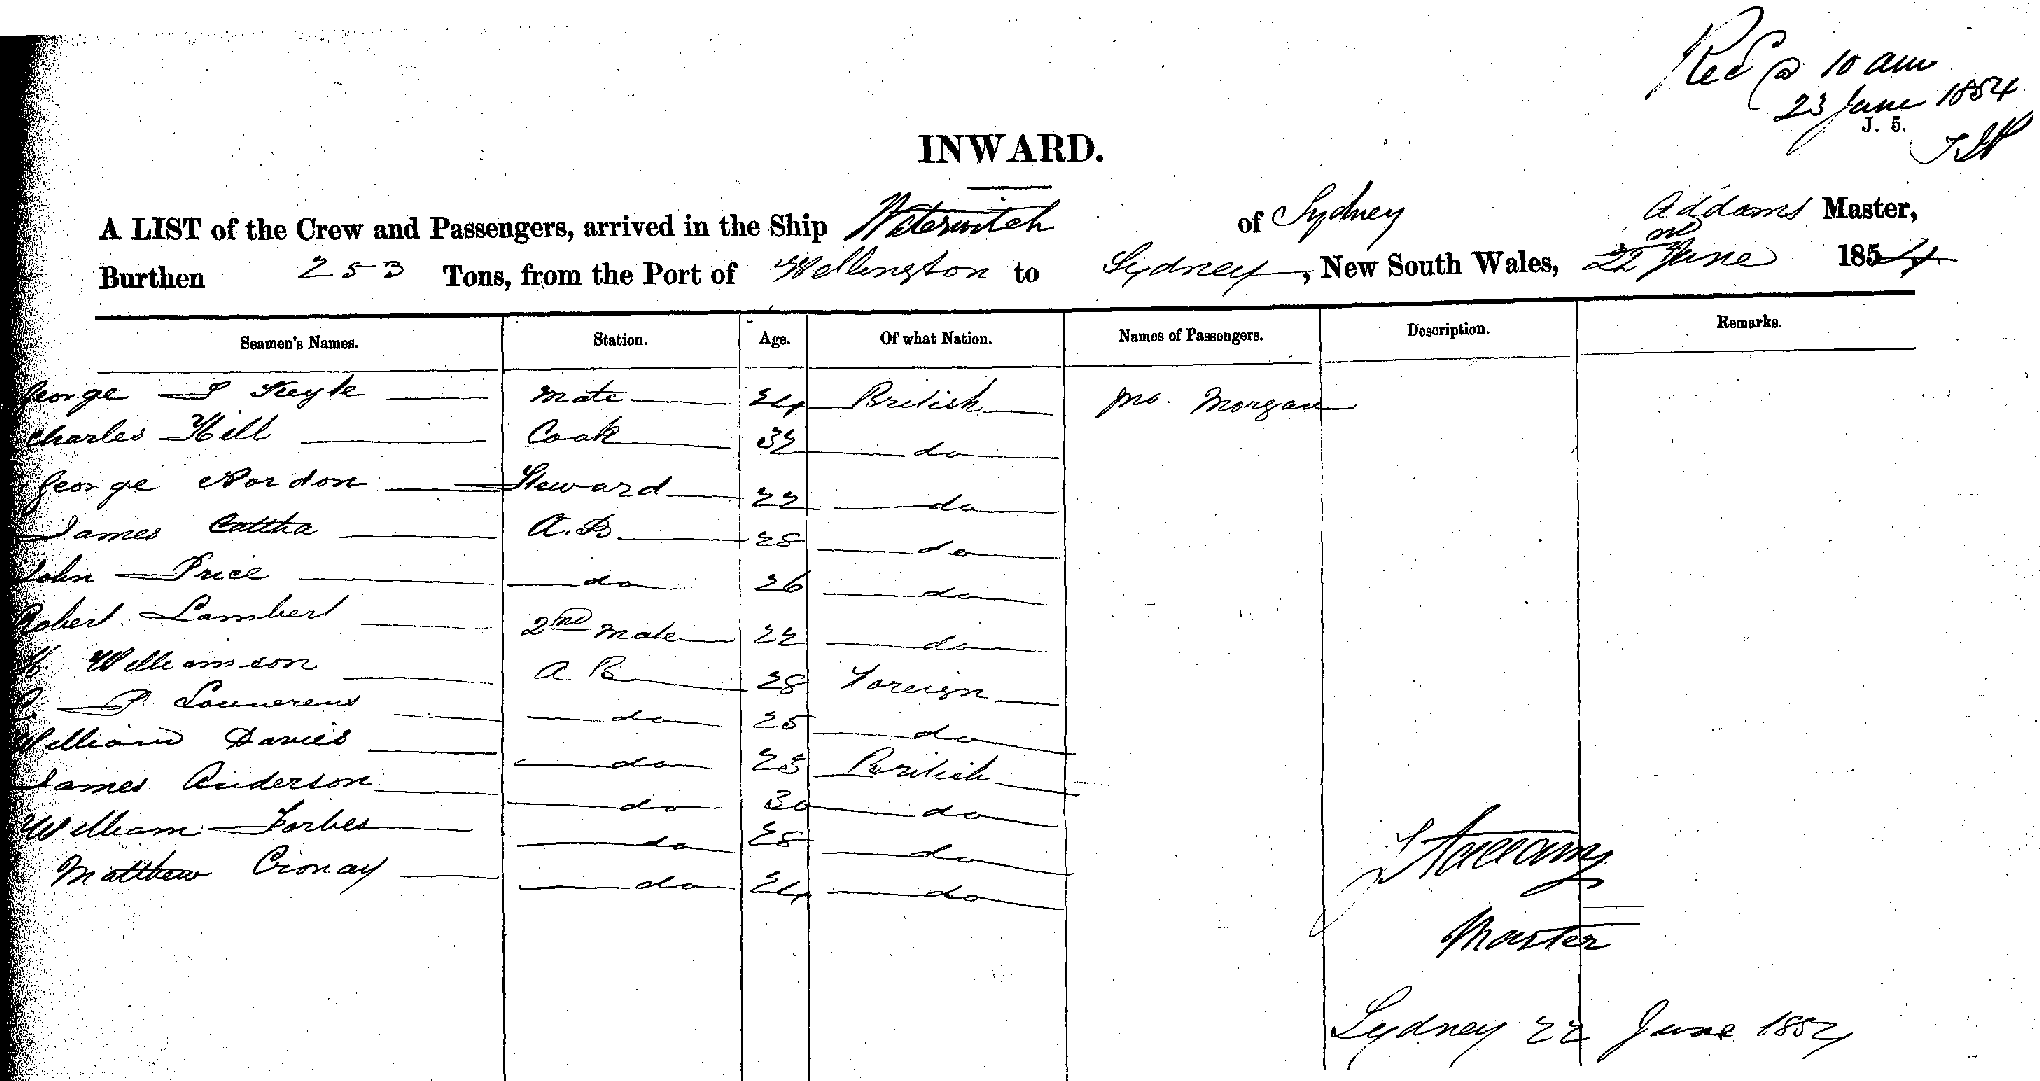 Recd @ 10 am
23 June 1854
J. 5.
INWARD.
A LIST of the Crew and Passengers, arrived in the Ship Waterwitch of Sydney Addams Master,
Burthen 253 Tons, from the Port of Wellington to Sydney, New South Wales, 22nd June 1854
Seamen's Names. Station. Age. Of what Nation. Names of Passengers. Description. Remarks.
George Keyle Mate 24 British Morgan
Charles Hill Cook 32 do
George Nordon Steward 22 do
James A.B 28 do
John Price do 26 do
Robert Lambert 2nd Mate 22 do
Williamson A B 28 Foreign
P do 25 do
William Davies do 23 British
James Anderson do 30 do
William Forbes do 28 do
Matthew Cronay do 24 do
Master
Sydney 22 June 1854